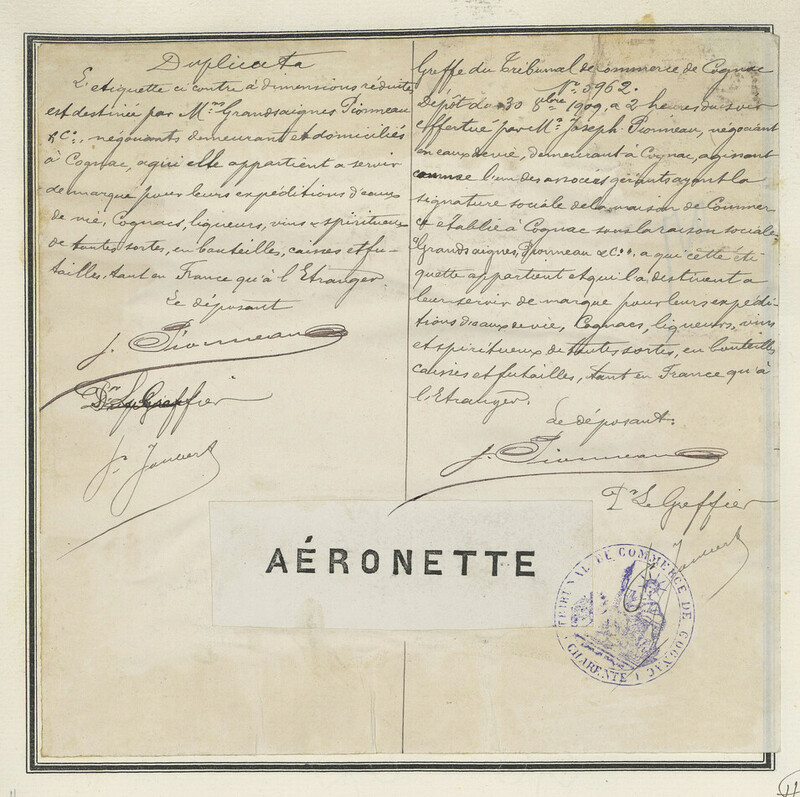 Duplicata
L'etiquette ci contre à dimensions réduites
est destinée par M.rs Grandsaignes Pionneau
& C.ie, négociants demeurant et domiciliés
à Cognac, a qui elle appartient a servir
de marque pour leurs expéditions d'eaux
de vie, Cognacs, liqueurs, vins & spiritueux
de toutes sortes, en bouteilles, caisses et fu-
tailles, tant en France qu'à l'Etranger.
Le déposant
J. Pionneau
Pr Le Greffier
Greffe du Tribunal de Commerce de Cognac
No. 5962.
Dépôt du 30 8bre 1909, a 2 heures du soir
effectué par Mr. Joseph Pionneau, négociant
en eaux de vie, demeurant à Cognac, agissant
comme l'un des associés gérants ayant la
signature sociale de la maison de Commer
ce établie à Cognac sous la raison sociale
Grandsaignes, Pionneau & C.ie, a qui cette éti
quette appartient et qui la destinent a
leur servir de marque pour leurs expédi-
tions d'eaux de vie, Cognacs, liqueurs, vins
et spiritueux de toutes sortes, en bouteilles
caisses et futailles, tant en France qu'à
l'Etranger.
Le déposant.
J. Pionneau
Pr Le Greffier
AÉRONETTE
TRIBUNAL DE COMMERCE DE COGNAC
(CHARENTE)